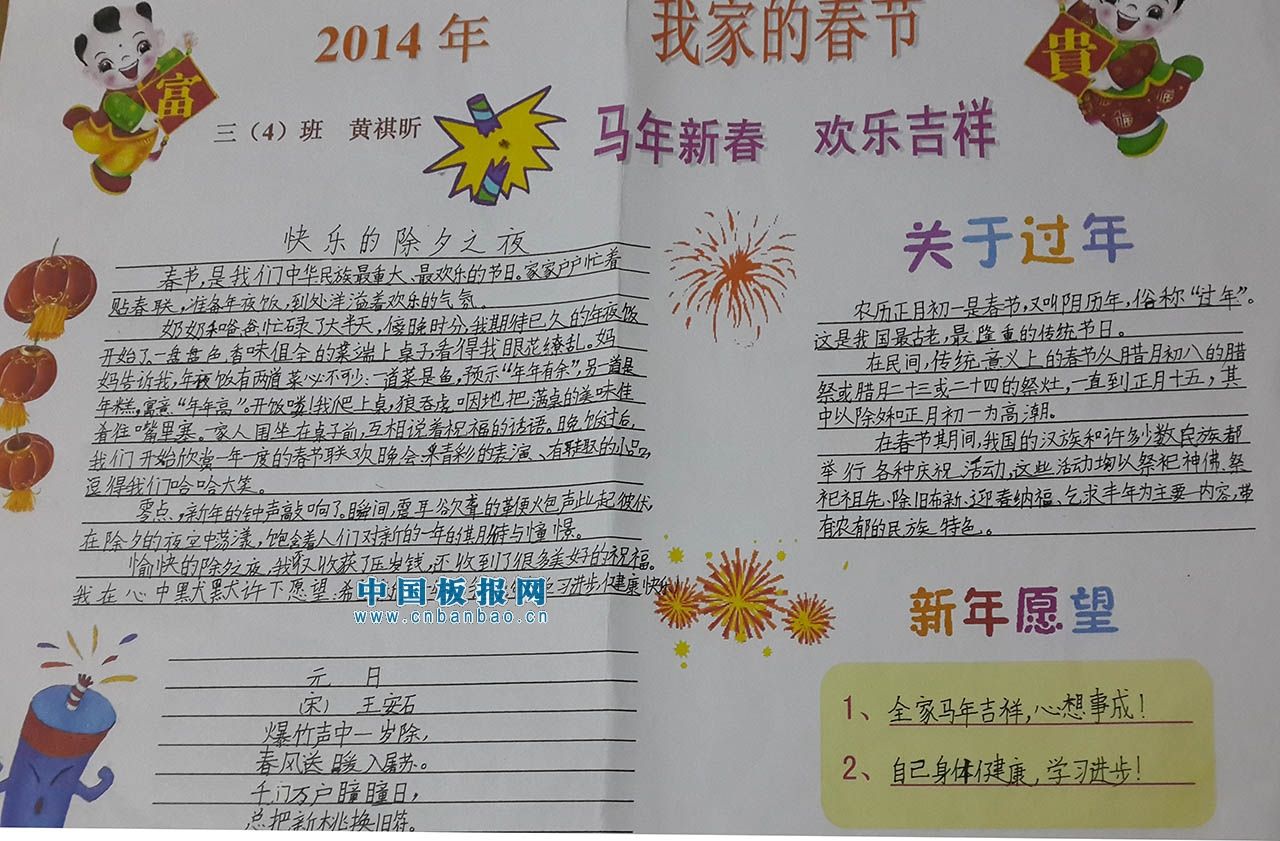 2014年
我家的春节
富
貴
三（4）班 黄祺昕
马年新春 欢乐吉祥
快乐的除夕之夜
春节,是我们中华民族最重大、最欢乐的节日。家家户户忙着
贴春联,准备年夜饭,到处洋溢着欢乐的气氛。
奶奶和爸爸忙碌了大半天,傍晚时分,我期待已久的年夜饭
开始了,一盘盘色,香味俱全的菜端上桌子,看得我眼花缭乱。妈
妈告诉我,年夜饭有两道菜必不可少:一道菜是鱼,预示“年年有余”,另一道是
年糕,寓意“年年高”。开饭喽!我爬上桌,狼吞虎咽地把满桌的美味佳
肴往嘴里塞。一家人围坐在桌子前,互相说着祝福的话语。晚饭过后,
我们开始欣赏一年一度的春节联欢晚会,精彩的表演、有趣的小品,
逗得我们哈哈大笑。
零点,新年的钟声敲响了。瞬间,震耳欲聋的鞭炮声此起彼伏,
在除夕的夜空中荡漾,饱含着人们对新的一年的期待与憧憬。
愉快的除夕夜,我不仅收获了压岁钱,还收到了很多美好的祝福。
我在心中默默许下愿望:希 学习进步,健康快乐!
中国板报网
www.cnbanbao.cn
元 日
(宋) 王安石
爆竹声中一岁除,
春风送暖入屠苏。
千门万户瞳瞳日,
总把新桃换旧符。
关于过年
农历正月初一是春节,又叫阴历年,俗称“过年”。
这是我国最古老,最隆重的传统节日。
在民间,传统意义上的春节从腊月初八的腊
祭或腊月二十三或二十四的祭灶,一直到正月十五,其
中以除夕和正月初一为高潮。
在春节期间,我国的汉族和许多少数民族都
举行各种庆祝活动,这些活动均以祭祀神佛、祭
祀祖先、除旧布新、迎春纳福、乞求丰年为主要内容,带
有浓郁的民族特色。
新年愿望
1、全家马年吉祥,心想事成!
2、自己身体健康,学习进步!